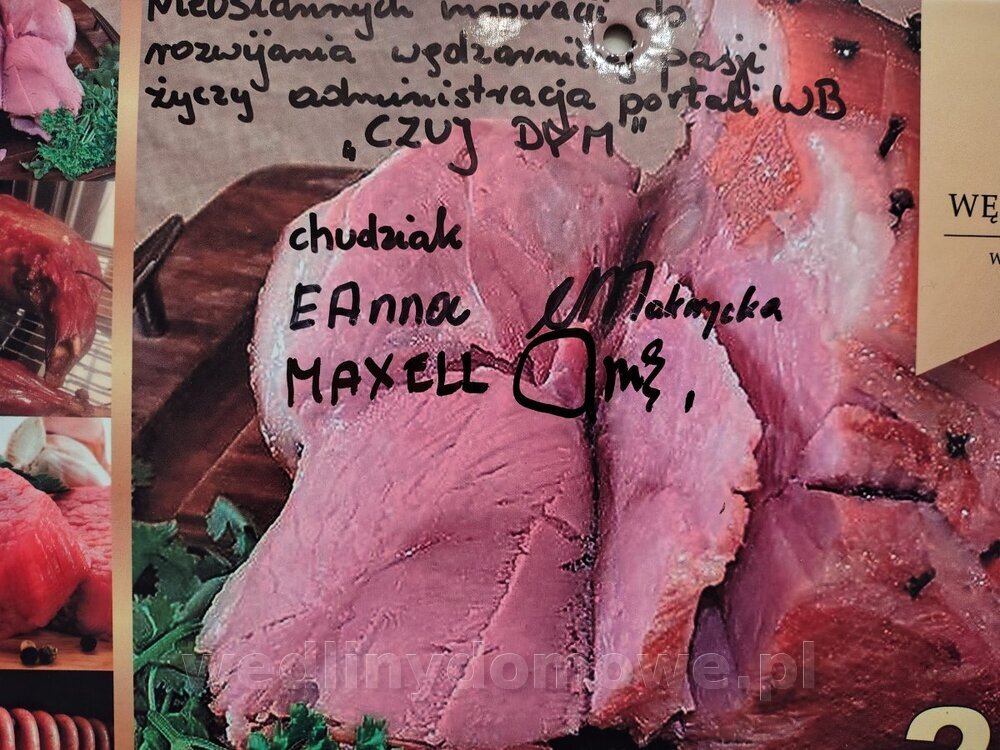 Nieustannych inspiracji do
rozwijania wędzarniczej pasji
życzy administracja portali WB
„CZUJ DYM"
chudziak
EAnna
MAXELL
WĘ
W
2
wedlinydomowe.pl